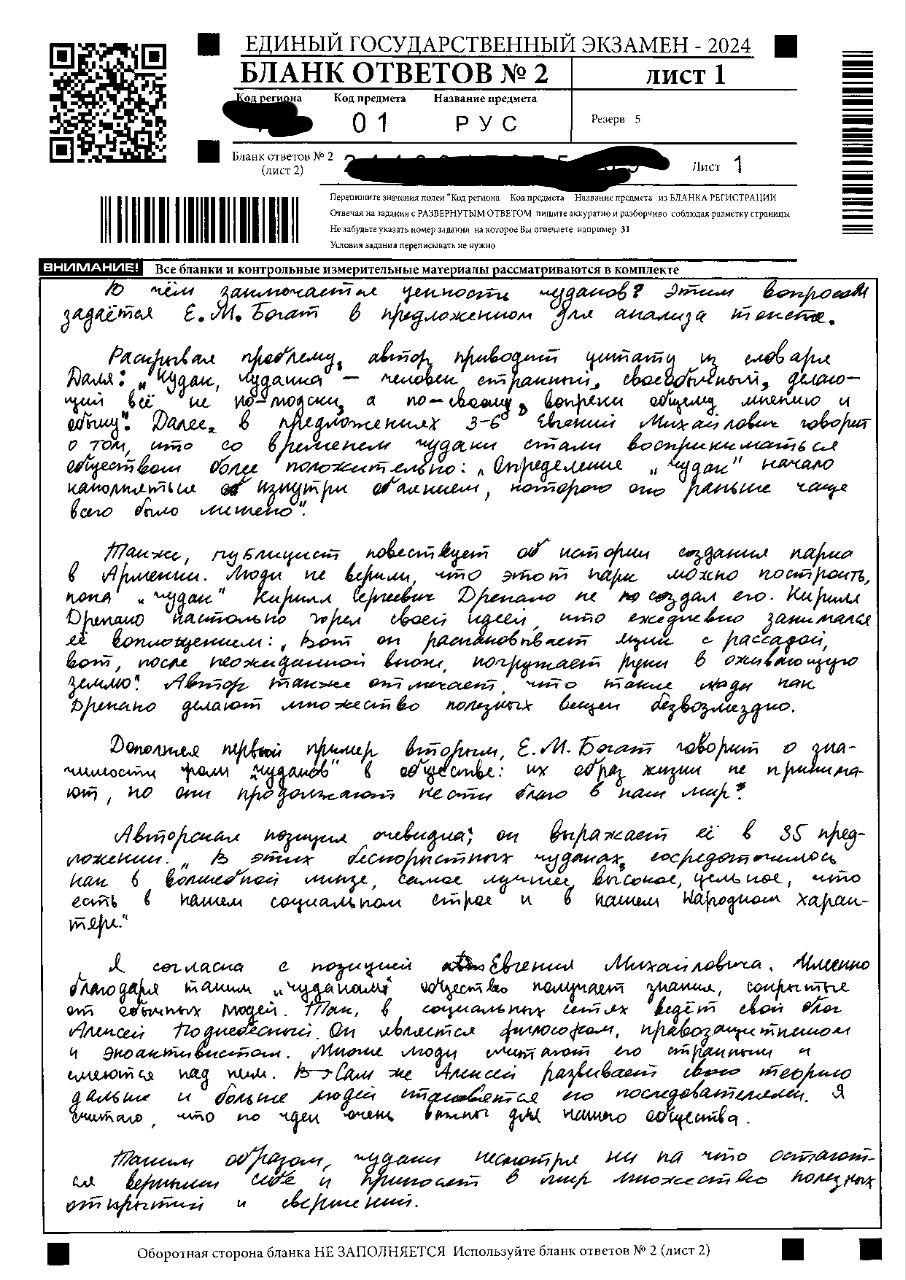 ЕДИНЫЙ ГОСУДАРСТВЕННЫЙ ЭКЗАМЕН - 2024
БЛАНК ОТВЕТОВ № 2 лист 1
Код региона Код предмета Название предмета
01 РУС Резерв 5
Бланк ответов № 2
(лист 2) Лист 1
Перепишите значения полей "Код региона Код предмета Название предмета из БЛАНКА РЕГИСТРАЦИИ
Отвечая на задания с РАЗВЕРНУТЫМ ОТВЕТОМ пишите аккуратно и разборчиво соблюдая разметку страницы
Не забудьте указать номер задания на которое Вы отвечаете например 31
Условия задания переписывать не нужно
ВНИМАНИЕ! Все бланки и контрольные измерительные материалы рассматриваются в комплекте
В чём заключается ценность чудаков? Этим вопросом
задаётся Е.М.Богат в предложенном для анализа тексте.
Раскрывая проблему, автор приводит цитату из словаря
Даля: „Чудак, чудачка — человек странный, своеобычный, делаю-
щий всё не по-людски, а по-своему, вопреки общему мнению и
обыку". Далее, в предложениях 3-6 Евгений Михайлович говорит
о том, что со временем чудаки стали восприниматься
обществом более положительно: „Определение „чудак" начало
наполняться изнутри обаянием, которого оно раньше чаще
всего было лишено".
Также, публицист повествует об истории создания парка
в Армении. Люди не верили, что этот парк можно построить,
пока „чудак" Кирилл Сергеевич Дрепало не создал его. Кирилл
Дрепало настолько горел своей идеей, что ежедневно занимался
её воплощением: „Вот он распаковывает ящик с рассадой,
вот, после неожиданной вьюги, погружает руки в оживающую
землю". Автор также отмечает, что такие люди как
Дрепало делают множество полезных вещей безвозмездно.
Дополняя первый пример вторым, Е.М.Богат говорит о зна-
чимости роли „чудаков" в обществе: их образ жизни не принима-
ют, но они продолжают нести благо в наш мир".
Авторская позиция очевидна: он выражает её в 35 пред-
ложении. „В этих бескорыстных чудаках, сосредоточилось
как в волшебной линзе, самое лучшее, высокое, цельное, что
есть в нашем социальном строе и в нашем народном харак-
тере."
Я согласна с позицией Евгения Михайловича. Именно
благодаря таким „чудакам" общество получает знания, сокрытые
от обычных людей. Так, в социальных сетях ведёт свой блог
Алексей Поднебесный. Он является философом, правозащитником
и экоактивистом. Многие люди считают его странным и
смеются над ним. Сам же Алексей развивает свою теорию
дальше и больше людей становятся его последователями. Я
считаю, что по идеи очень важны для нашего общества.
Таким образом, чудаки несмотря ни на что остают-
ся верными себе и приносят в мир множество полезных
открытий и свершений.
Оборотная сторона бланка НЕ ЗАПОЛНЯЕТСЯ Используйте бланк ответов № 2 (лист 2)